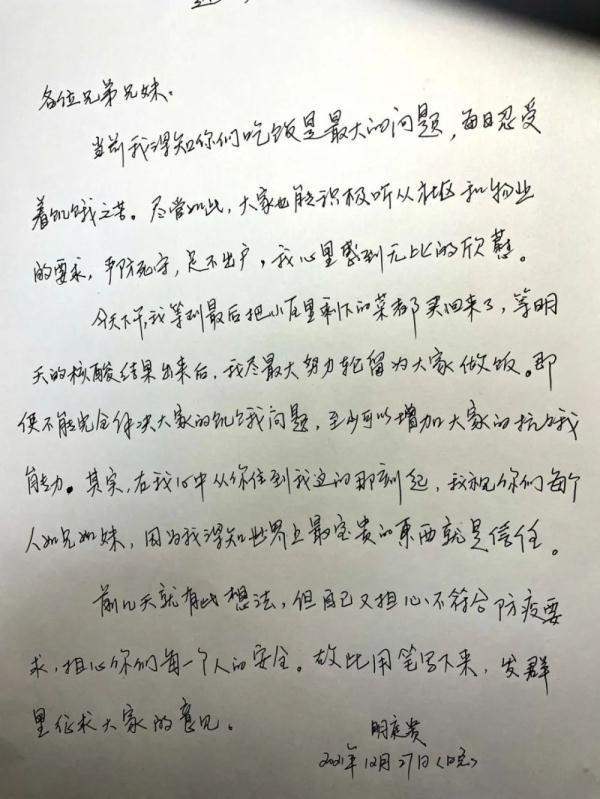 各位兄弟兄妹：
当前我深知你们吃饭是最大的问题，每日忍受
着饥饿之苦。尽管如此，大家也能积极听从社区和物业
的要求，严防死守，足不出户，我心里感到无比的欣慰。
今天下午我等到最后把小区里剩下的菜都买回来了，等明
天的核酸结果出来后，我尽最大努力轮留为大家做饭。即
便不能完全解决大家的饥饿问题，至少可以增加大家的抗饿
能力。其实，在我心中从你住到我这的那刻起，我视你们每个
人如兄如妹，因为我深知世界上最宝贵的東西就是信任。
前几天就有此想法，但自己又担心不符合防疫要
求，担心你们每一个人的安全。故此用笔写下来，发群
里征求大家的意见。
2021年12月27日（晚）